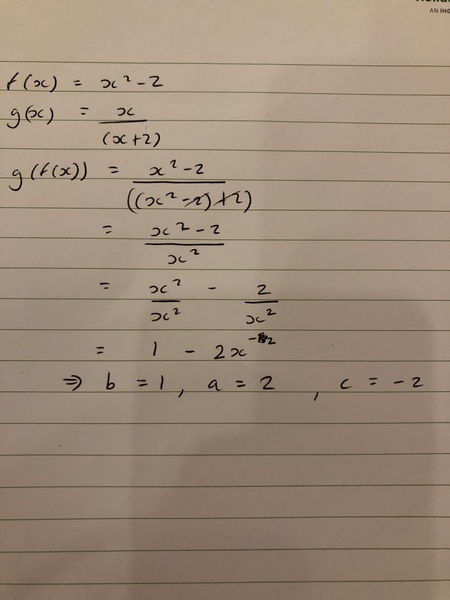 AN IHG
f(x) = x² - 2
g(x) = x / (x+2)
g(f(x)) = x² - 2 / ((x² - 2) + 2)
= x² - 2 / x²
= x² / x² - 2 / x²
= 1 - 2x⁻²
⇒ b = 1, a = 2, c = -2